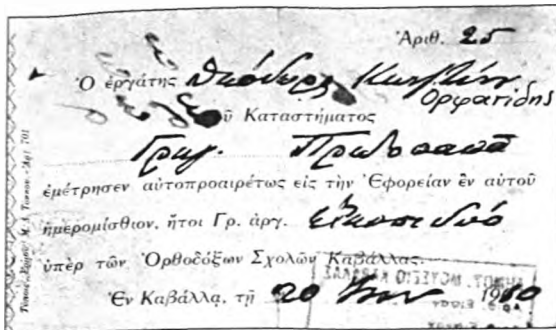 Ἀριθ. 25
Ὁ ἐργάτης Θεόδωρος
Ὀρφανίδης
τοῦ Καταστήματος
Γρηγ. Πρωτοπαπᾶ
ἐμέτρησεν αὐτοπροαιρέτως εἰς τὴν Ἐφορείαν ἓν αὐτοῦ
ἡμερομίσθιον, ἤτοι Γρ. ἀργ. εἴκοσι δύο
ὑπὲρ τῶν Ὀρθοδόξων Σχολῶν Καβάλλας.
Ἐν Καβάλλᾳ, τῇ 20 1910